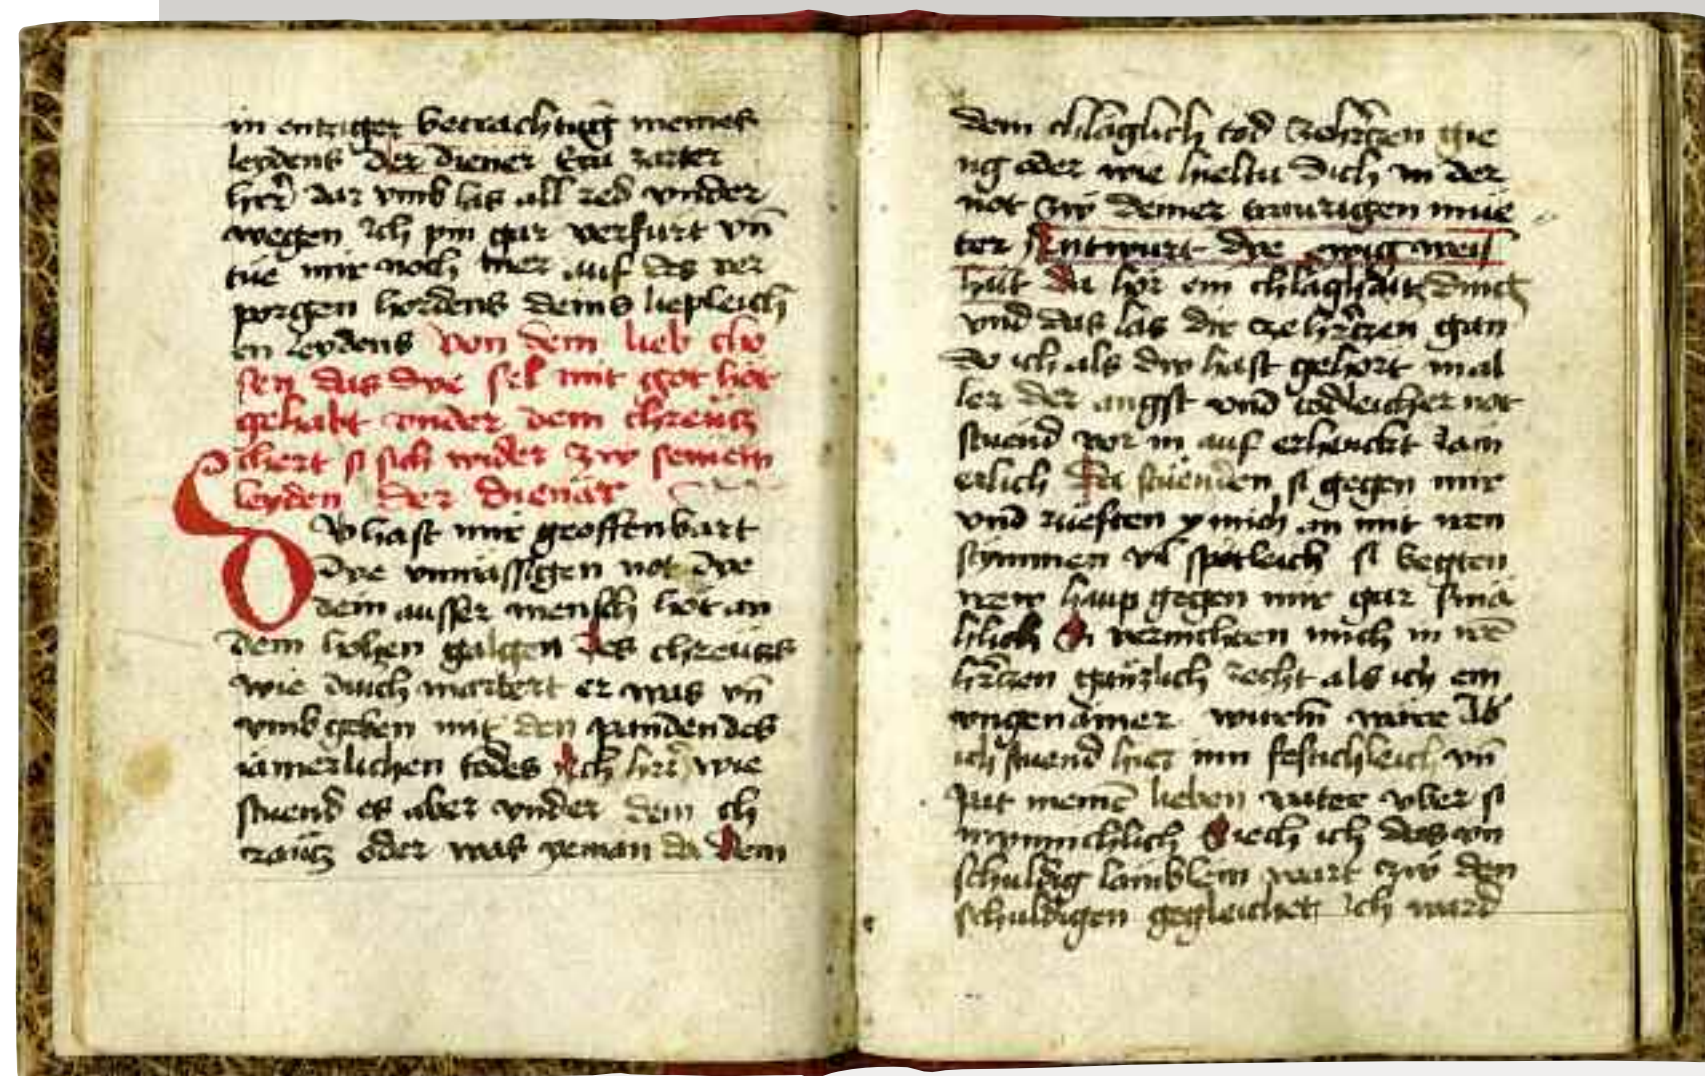 in emziger betrachtūg meines
leydens der diener Eya zarter
h̄rr dar vmb las all red vnder
wegen Ich pin gar verfurt vn̄
tue mir noch mer auf des ver
porgen hordens deins liepleich
en leydens von dem lieb cho
sen das dye sel mit got hot
gehabt vnder dem chreutz
chert si sich wider zw seinem
leyden der dienar
Dv hast mir geoffenbart
dye vnmassigen not dye
dein ausser mensch hot an
dem hohen galgen des chreutz
wie dinch martert er was vn̄
vmb geben mit den panden des
iamerlichen todes Ach h̄rr wie
stuend es aber vnder dem ch
rautz oder was yeman da dem
dem chläglich tod zeh̄rczen gie
ng oder wie hieltu dich in der
not zw deiner trawrigen mue
ter Antwurt dye ewig weis
hait da hör ein chläghäftz dinck
vnd das las dir cze h̄rczen gan
Do ich als dw hast gehort in al
ler der angst vnd todleicher not
stuend vor in auf erhenckt iam
erlich da stuenden si gegen mir
vnd rueften mich an mit iren
stymmen vil spotleich si begten
irew haup gegen mir gar smä
hlich vn vernichten mich in irē
h̄rczen gänzlich recht als ich ein
vngenämer wurm wäre Ab
ich stuend hier inn festichleich vn̄
pat meinē lieben vater vber si
mynnichlich Siech ich das vn
schuldig lämblein wart zw den
schuldigen gegleichet Ich ward